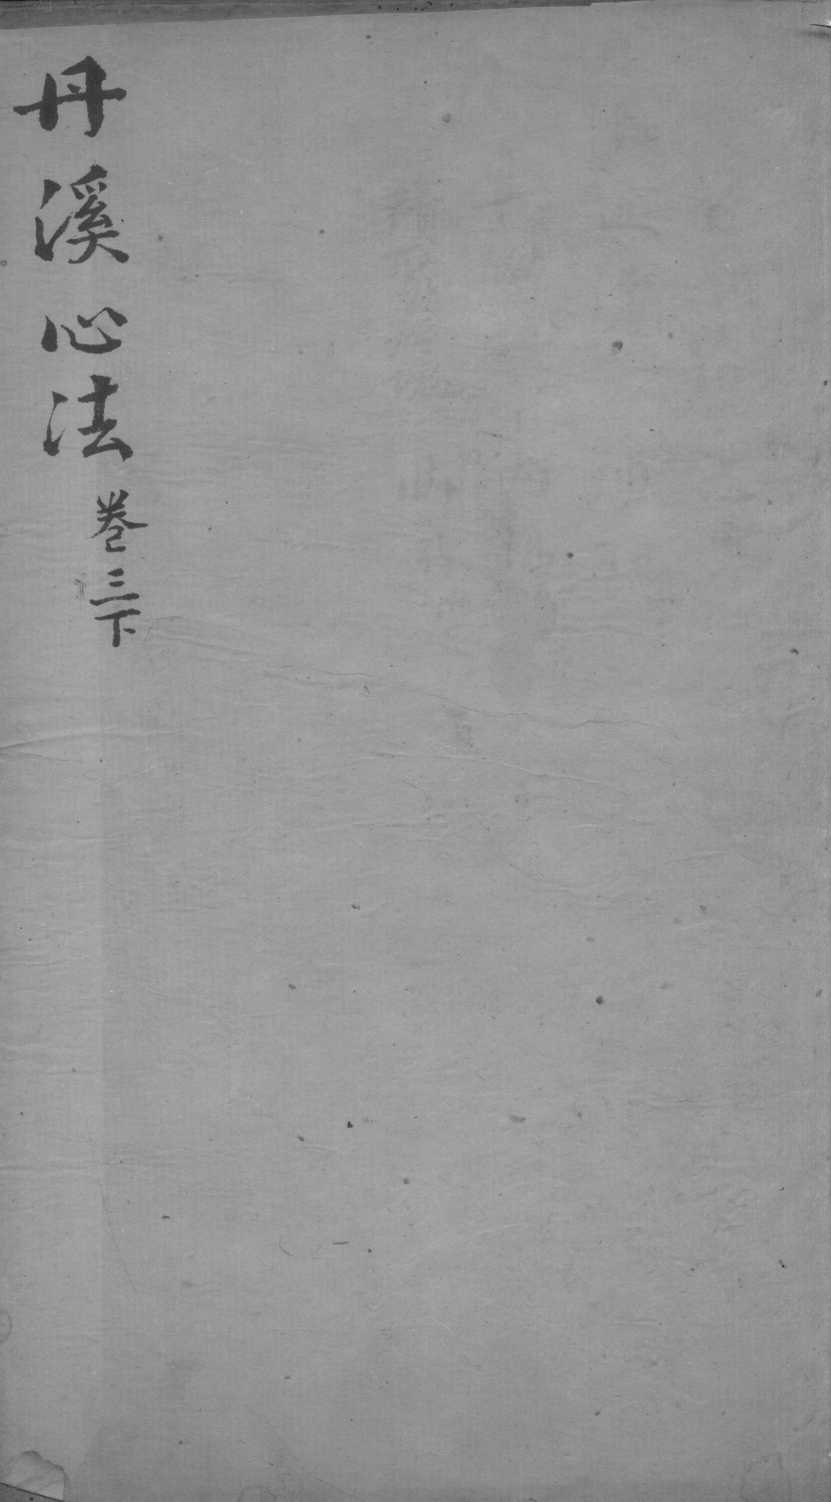 丹溪心法
卷三下